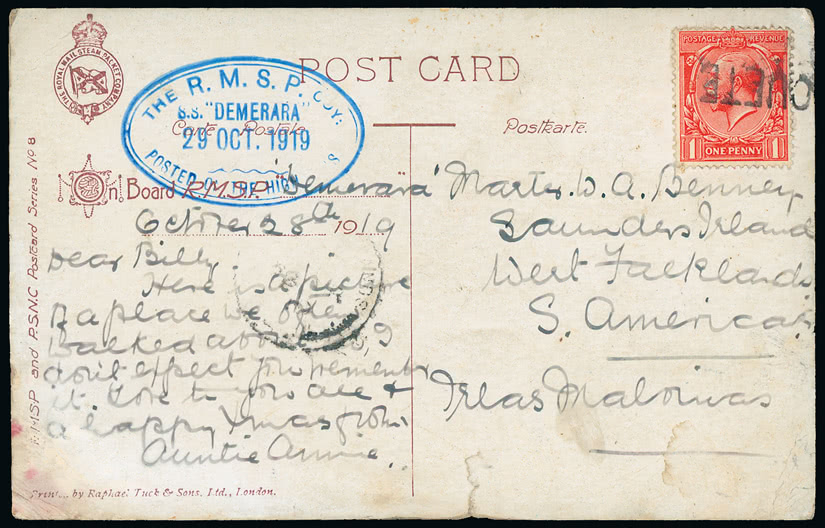 THE ROYAL MAIL STEAM PACKET COMPANY
POST CARD
THE R.M.S.P. COY:
S.S. "DEMERARA"
29 OCT. 1919
POSTED ON THE HIGH S
Carte Postale
Postkarte.
POSTAGE REVENUE
1 ONE PENNY 1
R.M.S.P and P.S.N.C Postcard Series No 8
On Board R.M.S.P. "Demerara"
October 28th 1919
Dear Billy.
Here is a picture
of a place we often
walked about
I
don't expect you remember
it. Love to you all &
a happy Xmas from
Auntie Annie.
Master W. A. Benney
Saunders Island
West Falklands
S. America.
Islas Malvinas
by Raphael Tuck & Sons. Ltd., London.